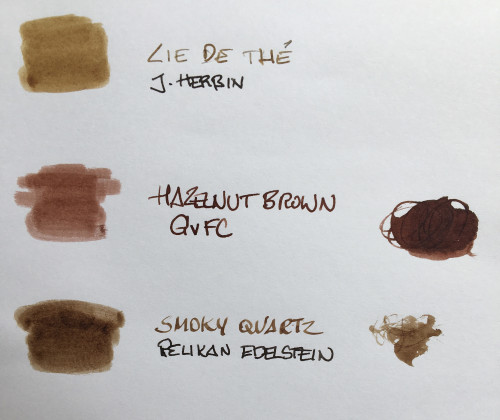 LIE DE THÉ
J. HERBIN
HAZELNUT BROWN
GVFC
SMOKY QUARTZ
PELIKAN EDELSTEIN